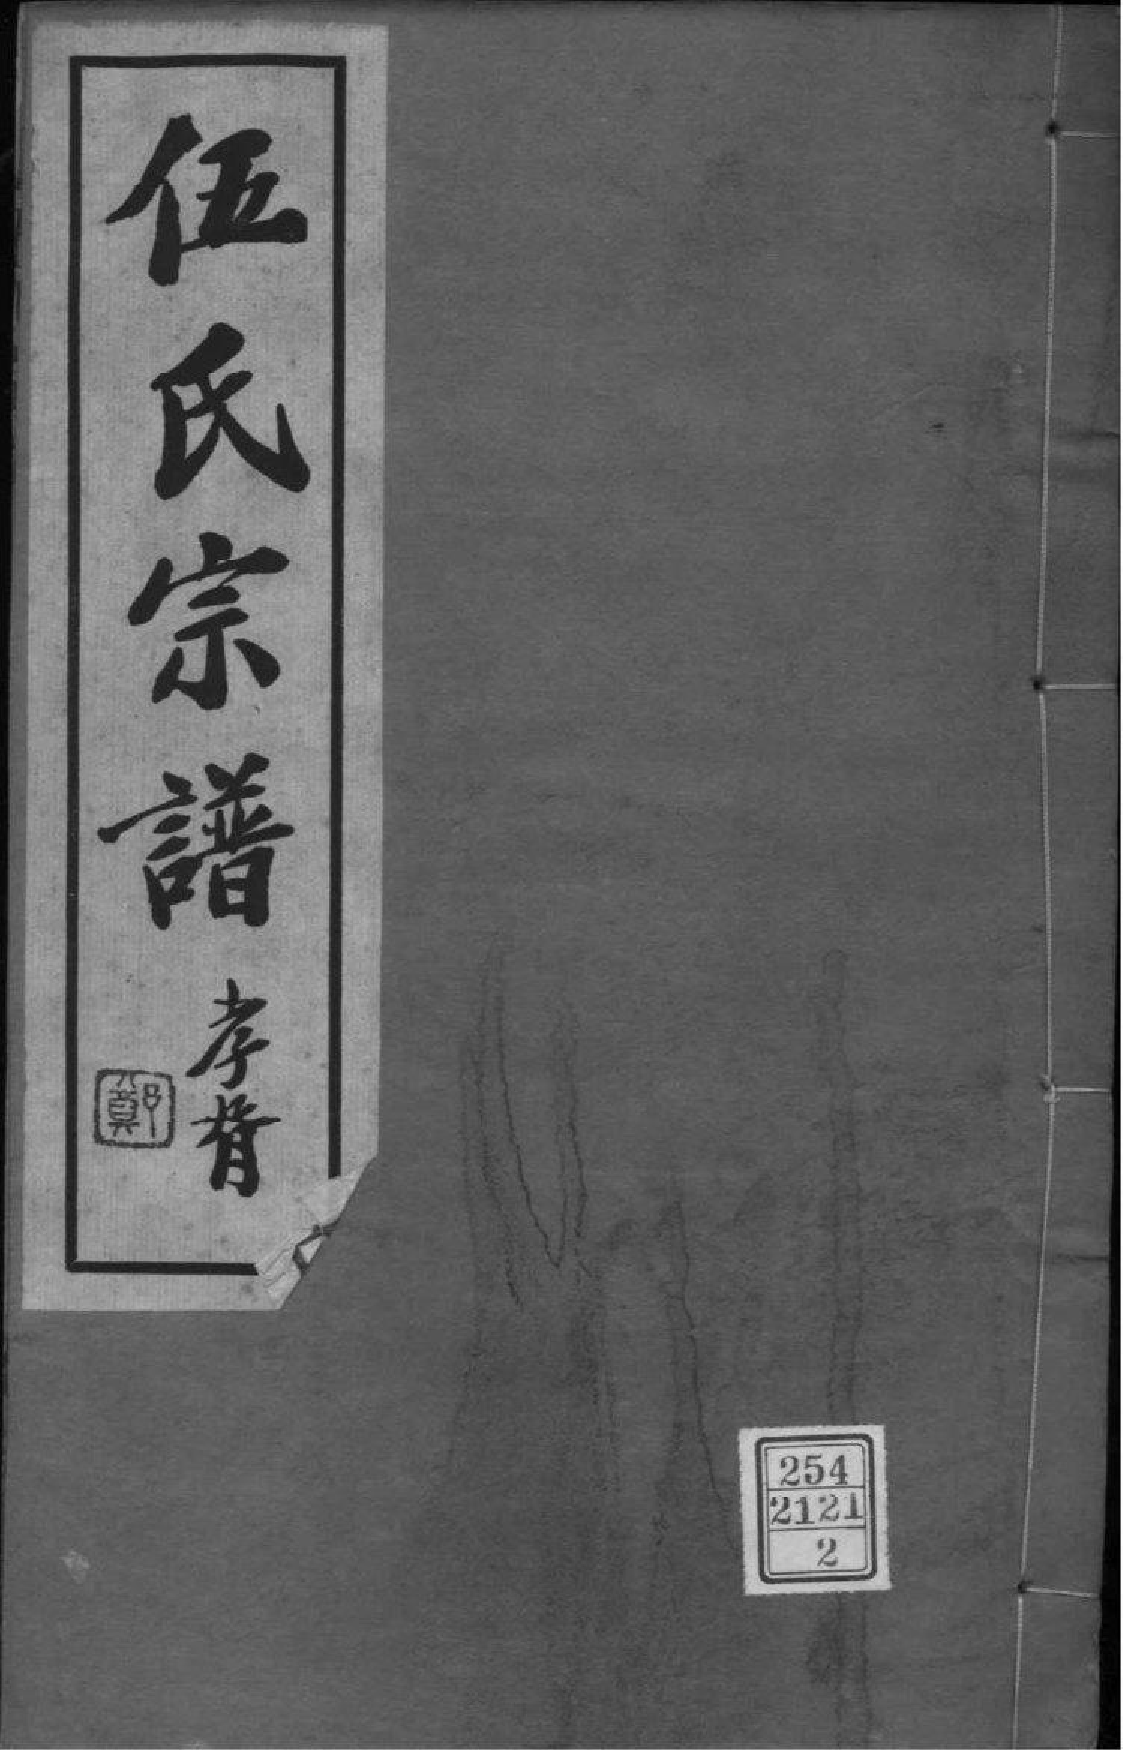 伍氏宗譜
孝胥
鄭
254
2121
2